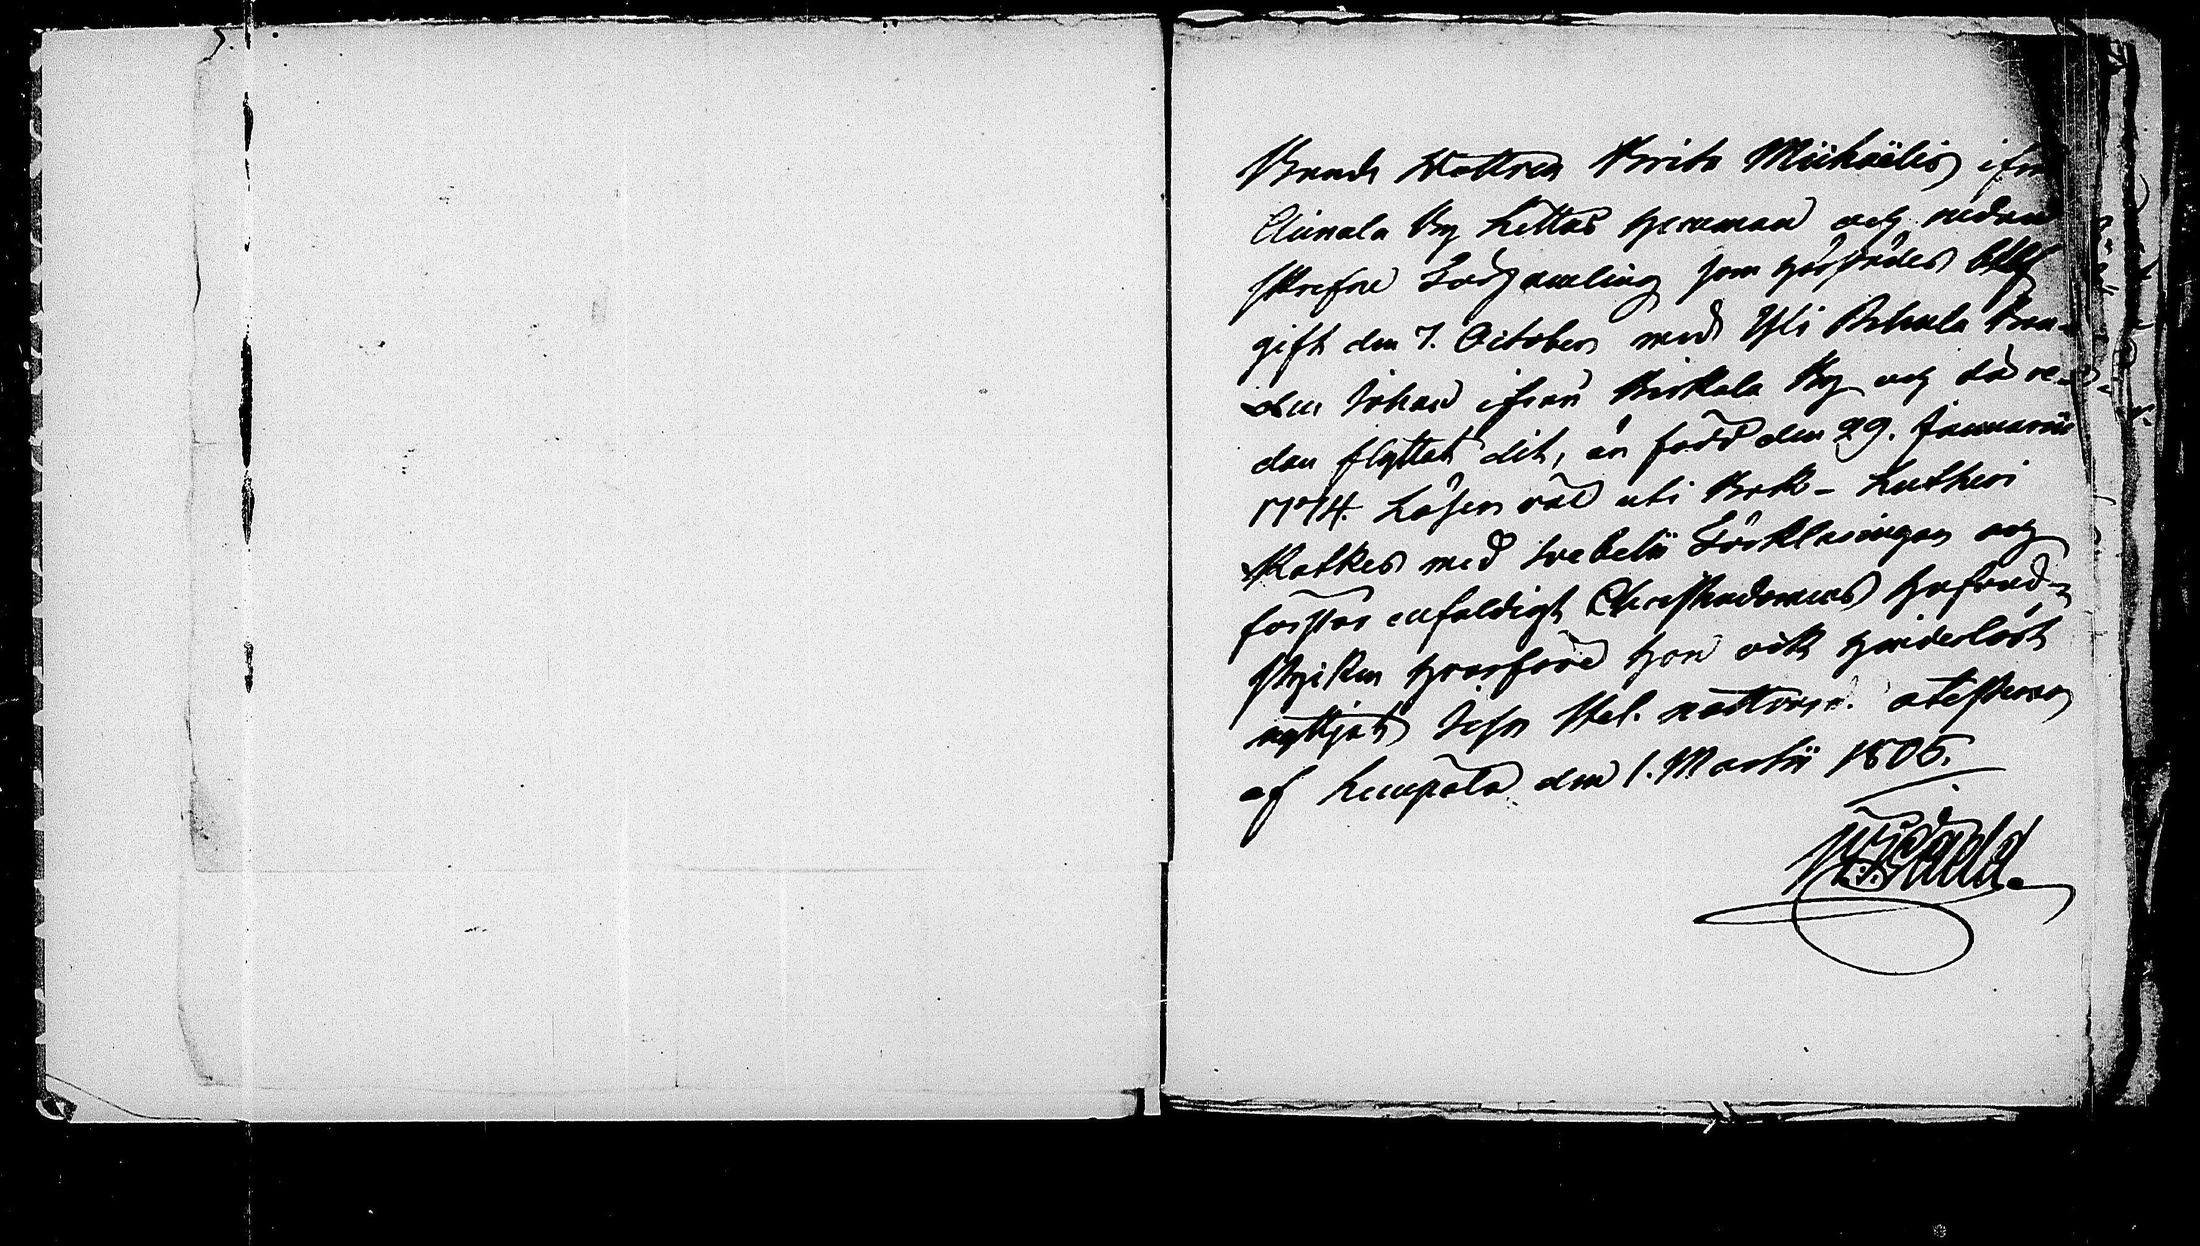 Bonde Dottren Brita Michaëlis ifrå
Ainala By Lettas hemman och nedan
skrefne Församling som hösstädes blef
gift den 7. October med Yli Pehula Bon-
den Johan ifrån Birkala By och då re-
dan flyttat dit, är född den 29. Januarii
1774. Läser väl uti Bok - Lutheri
Katkes med Swebelii Förklaringar och
förstår enfaldigt Christendomens hufvud-
stycken hvarföre hon ock hinderlöst
nyttjat H. nattvard. attesterar
af Lempälä den 1. Martii 1805.